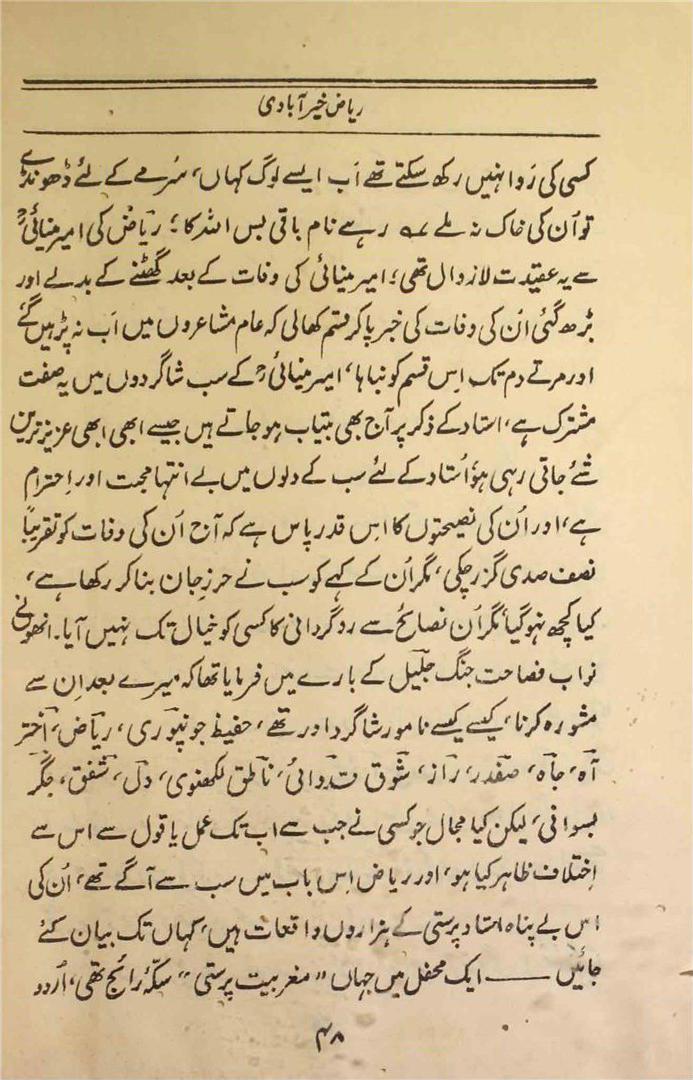 ریاض خیرآبادی
کسی کی رَوا نہیں رکھ سکتے تھے اَب ایسے لوگ کہاں، سُرمے کے لئے ڈھونڈے
تو اُن کی خاک نہ ملے ؎ رہے نام باقی بس اللہ کا؛ ریاضؔ کی امیر مینائیؒ
سے یہ عقیدت لازوال تھی؛ امیر مینائی کی وفات کے بعد گھٹنے کے بدلے اور
بڑھ گئی اُن کی وفات کی خبر پا کر قسم کھالی کہ عام مشاعروں میں اَب نہ پڑہیں گے
اور مرتے دم تک اِس قسم کو نباہا، امیر مینائیؒ کے سب شاگردوں میں یہ صفت
مشترک ہے، استاد کے ذکر پر آج بھی بیتاب ہو جاتے ہیں جیسے ابھی ابھی عزیز ترین
شئے جاتی رہی ہو، اُستاد کے لئے سب کے دلوں میں بے انتہا محبت اور اِحترام
ہے، اور اُن کی نصیحتوں کا اس قدر پاس ہے کہ آج اُن کی وفات کو تقریباً
نصف صدی گزر چکی، مگر اُن کے کہے کو سب نے حرزِ جان بنا کر رکھا ہے،
کیا کچھ نہو گیا مگر اُن نصائح سے ردگردانی کا کسی کو خیال تک نہیں آیا۔ انھوں نے
نواب فصاحت جنگ جلیلؔ کے بارے میں فرمایا تھا کہ میرے بعد اِن سے
مشورہ کرنا، کیسے کیسے نامور شاگرد اور تھے، حفیظؔ جونپوری، ریاضؔ، اخترؔ
آہؔ، جاہؔ، صفدرؔ، رازؔ، شوقؔ قدوائی، ناطقؔ لکھنوی، دلؔ، شفقؔ، جگرؔ
بسوانی، لیکن کیا مجال جو کسی نے جب سے اب تک عمل یا قول سے اس سے
اِختلاف ظاہر کیا ہو، اور ریاض اِس باب میں سب سے آگے تھے، اُن کی
اس بے پناہ استاد پرستی کے ہزاروں واقعات ہیں، کہاں تک بیان کئے
جائیں —— ایک محفل میں جہاں "مغربیت پرستی" سکّۂ رائج تھی، اُردو
۴۸